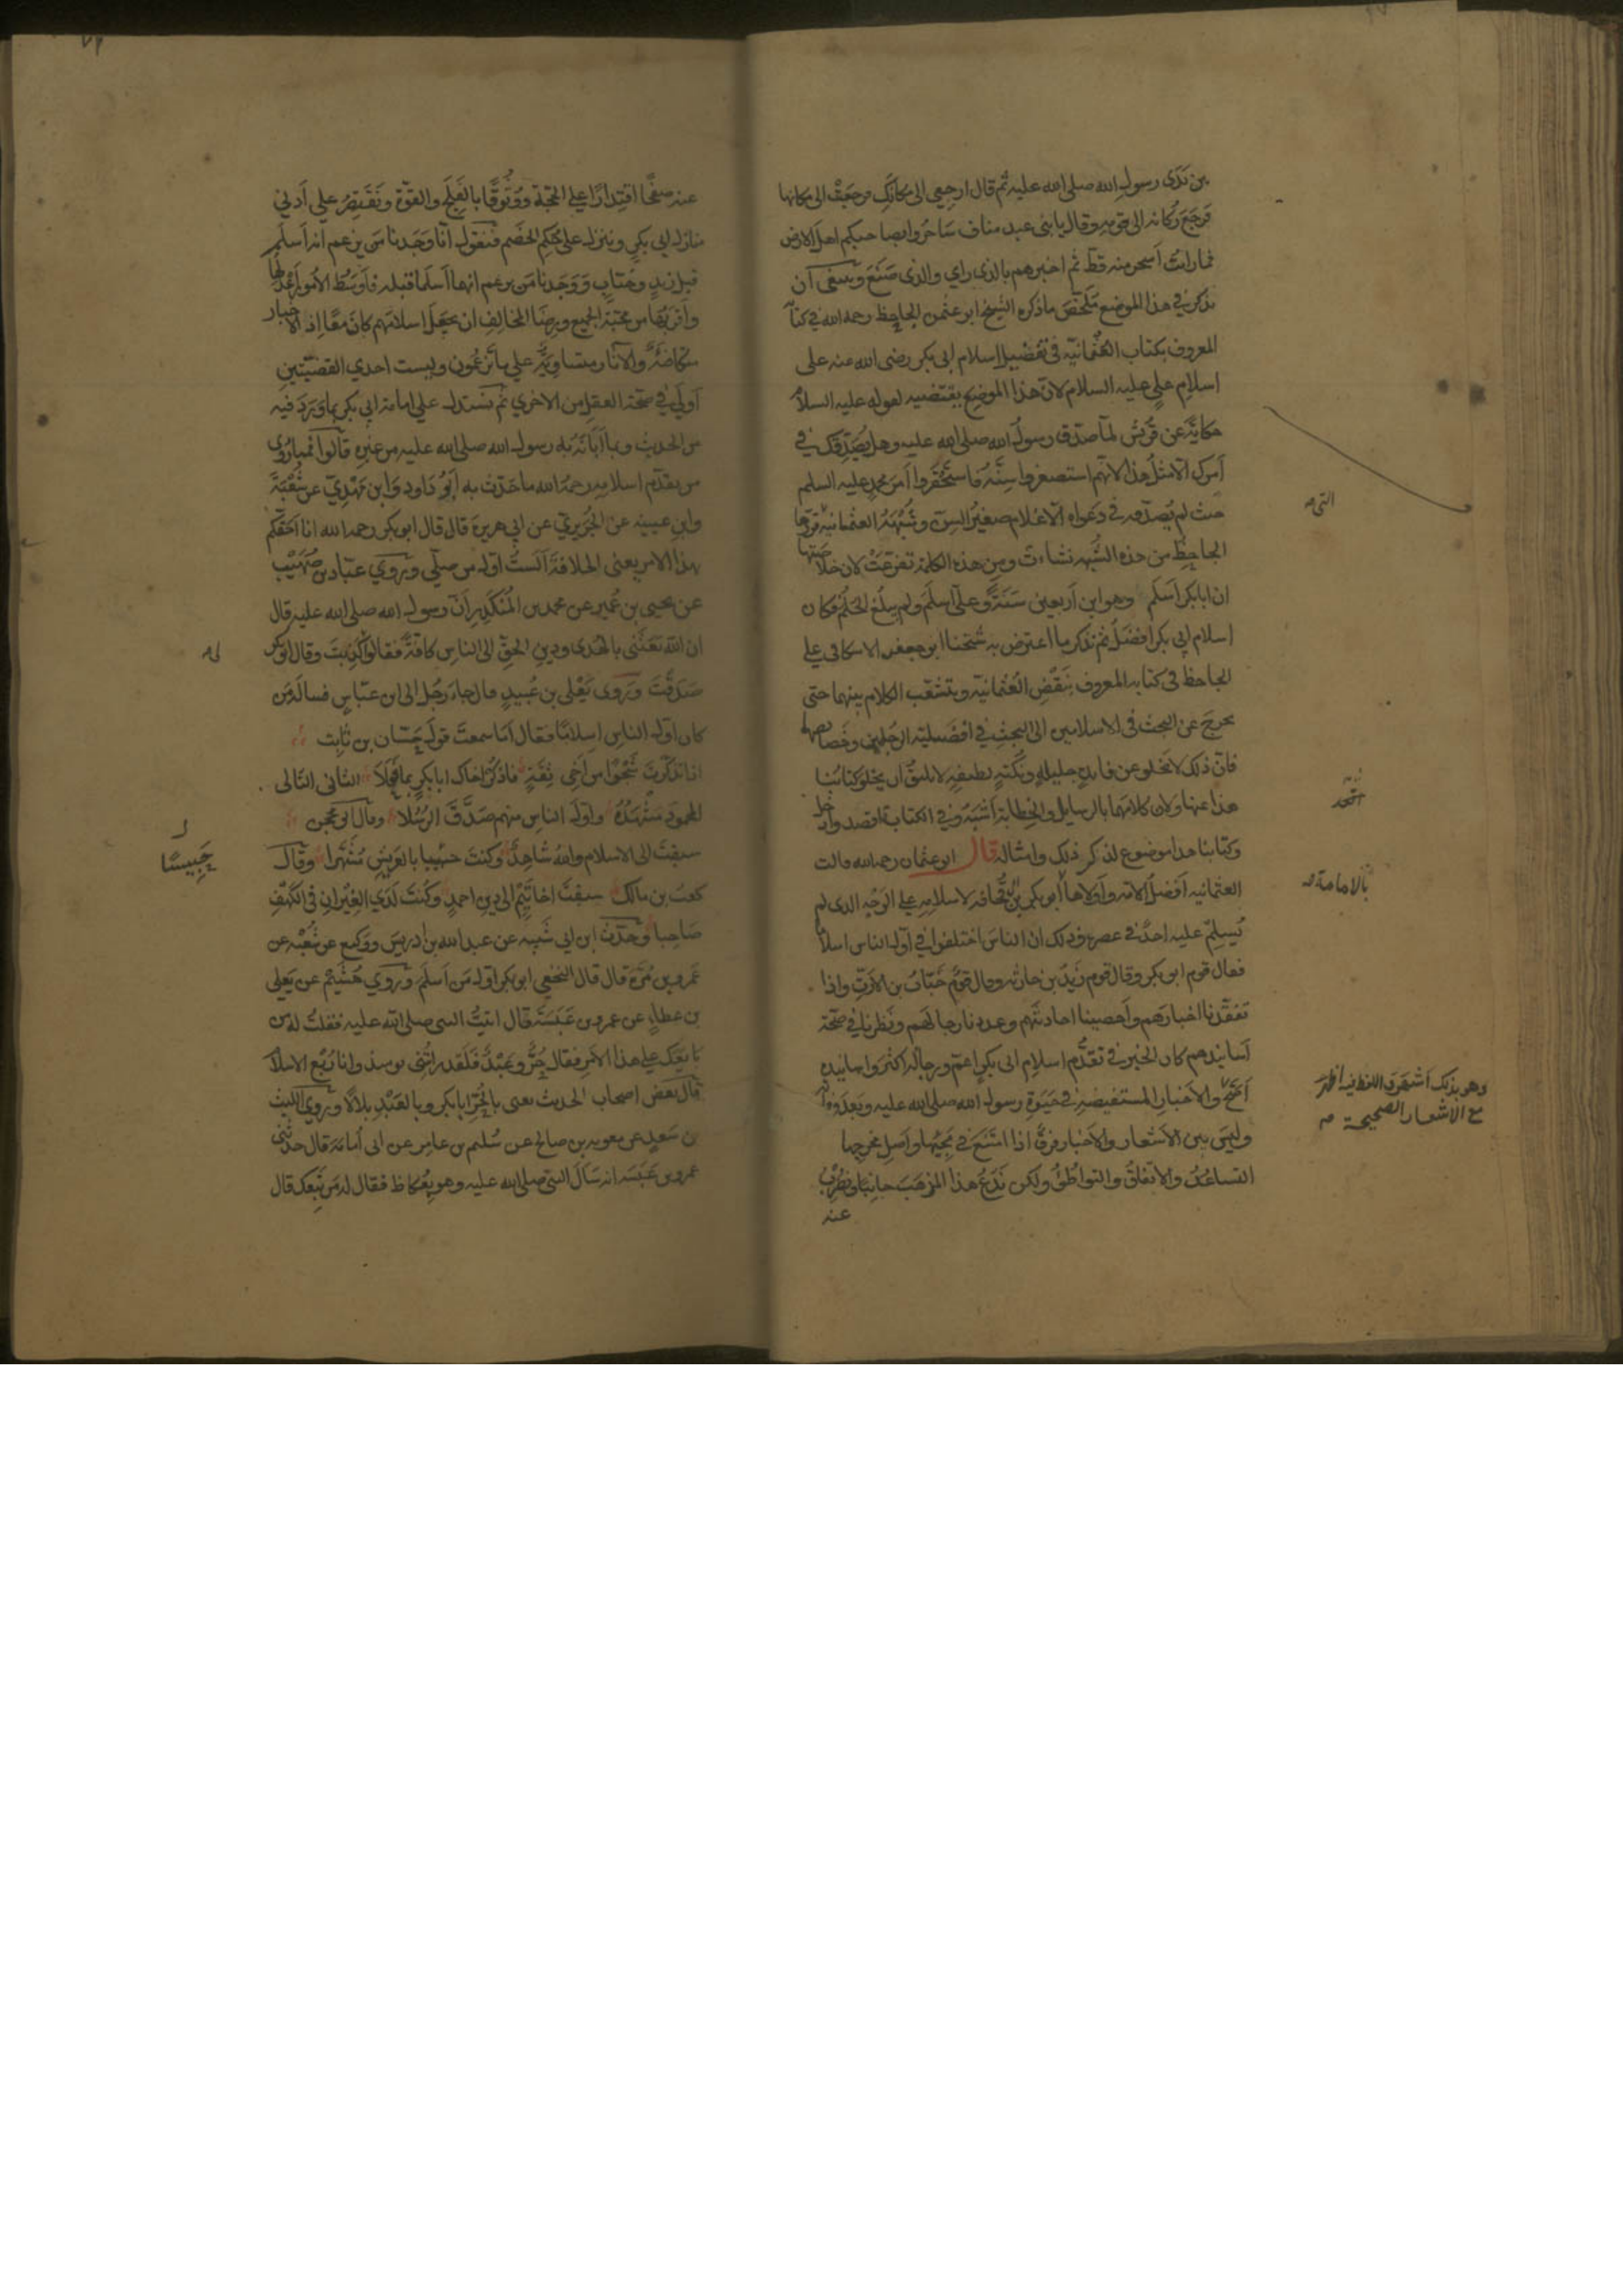 بين يَدَى رسولِ الله صلى الله عليه ثم قال ارجعى الى مكانكِ فرجعَتْ الى مكانها
فرجَعَ رُكانه الى قومه وقال يا بنى عبد مناف سَاحِرُوا بصاحبكم اهل الارض
فما رايت اَسحر منه قط ثم اخبرهم بالذى راي والذى صَنَعَ وينبغى آن
نذكر في هذا الموضع مُلَخّصَ ماذكره الشيخ ابو عثمن الجاحظ رحمه الله في كتابه
المعروف بكتاب العُثمانيّه فى تفضيل اسلام ابى بكر رضى الله عنه على
اسلامِ علي عليه السلام لانّ هذا الموضع يقتضيه لقوله عليه السلام
حكايةً عن قُريش لمّا صدّق رسولَ الله صلى الله عليه وهل يُصَدِّقك في
اَمرك الّا مثلُ هذا لانهم استصغروا سِنَّهُ فاستَحْقَروا اَمرَ محمدٍ عليه السلم
حيث لم يُصَدّقه في دعواه الّا غلام صغيرُ السِنّ وشُبْهَةُ العثمانيّه قرّرها
الجاحِظُ من هذه الشُبْهه نشاءت ومِن هذه الكلمة تفرعَتْ لان خلاصتها
ان ابا بكر اَسْلَم وهو ابن اَربعين سَنَةً وعلىّ اَسلَمَ ولم يبلُغ الحُلُم فكان
اسلام ابى بكر افضَلُ ثم نذكر ما اعترض به شيخنا ابو جعفر الاسكافى على
الجاحظ فى كتابه المعروف بنَقْضِ العُثمانيّه ويتشعّب الكلام بينهما حتى
يخرجَ عن البحث فى الاسلامين الى البحثِ في افضليّة الرَجُلينِ وخصائصهما
فانّ ذلك لا يَخلو عن فائدةٍ جليلهٍ ونُكتهٍ لطيفهٍ لا يليقُ اَن يخلو كتابُنا
هذا عنها ولان كلامَهما بالرسايل والخِطابة اَشبَهُ وفي الكتابة اقصد وادخل
وكتابنا هذا موضوع لذكر ذلك وامثاله قال ابو عثمان رحمه الله قالت
العثمانيه اَفضلُ الامّه واَولاها ابو بكر بن ابى قُحافه لاسلامِهِ على الوَجْهِ الذى لم
يُسلِم عليه احدٌ في عصره وذلك ان الناسَ اختلفوا في اَوّلِ الناس اسلامًا
فقال قوم ابو بكر وقال قوم زيدُ بن حارثه وقال قومٌ خَبّابُ بن الاَرَتِّ واذا
تفَقّدنا اخبارَهم واَحصينا احاديثَهم وعددنا رجالَهم ونَظرنا في صحّة
اَسانيدهم كان الخبرُ في تقدُّم اسلامِ ابى بكرٍ اعمّ ورجاله اكثرَ واسانيده
اَصَحّ والاَخبار المستفيضه في حَيَوةِ رسول الله صلى الله عليه وبعدَ وفاته
وليسَ بين الاشعار والاَخبار فرقٌ اذا امتنَعَ في مَجِيئها واَصلِ مخرجِها
التساعُدُ والاتفاقُ والتواطُؤُ ولكن نَدَعُ هذا المذهَبَ جانِبًا ونضرِبُ
عنه
التى
اقعد
بالامامة
وهو بذلك اَشهَرُ واللفظ فيه اَظهَر
مع الاشعار الصحيحة
عنه صَفْحًا اقتِدارًا على الحُجّة ووُثُوقًا بالفَلْج والقوّة ونَقتَصِرُ على اَدنى
منازل ابى بكر وننزل على حُكمِ الخَصْمِ فنقول انّا وَجَدنا مَن يزعم انه اَسلَم
قبل زيدٍ وخبّابٍ ووَجدنا مَن يزعم انهما اَسلَما قبله فاَوسَطُ الاُمور اَعدَلُها
واَقربُها من محبّة الجميع ورِضَا المخالف ان نجعَلَ اسلامَهم كان معًا اِذ الاخبار
متكافئةٌ والآثار متساويةٌ على ما تَزعُمون وليست احدى القضيّتين
اَولَى في صحّة العقل من الاخري ثم نستدل على امامة ابى بكر بما وَرَدَ فيه
من الحديث وبما اَبانَهُ به رسول الله صلى الله عليه من غيرِه قالوا فمما رُوِي
من تقدّم اسلامه رحمه الله ما حَدّث به اَبُو دَاود وَابن مَهْدِيّ عن شُعْبَة
وابن عيينه عن الجُرَيريّ عن ابى هريرة قال قال ابو بكر رحمه الله انا اَحَقّكم
بهذا الامر يعنى الخلافة اَلَستُ اَوّل من صلّى ورَوَي عبّاد بن صُهَيب
عن يحيى بن عُمير عن محمد بن المُنكَدِر اَنّ رسول الله صلى الله عليه قال
ان الله بَعَثَنى بالهُدى ودينِ الحَقّ الى الناسِ كافّةً فقالوا كَذَبتَ وقال ابو بكر
صَدَقْتَ ورَوى يَعْلَى بن عُبيدٍ قال جاءَ رَجُل الى ابن عبّاسٍ فسالَهُ مَن
كان اَوّلَ الناسِ اِسلامًا فقال اَما سمعتَ قولَ حَسّان بن ثابت
اذا تذكّرتَ شَجْوًا من اَخى ثِقَةٍ فاذكُر اخاك ابا بكرٍ بما فَعَلَا الثانى التالى
المحمودَ مَشْهَدُهُ واوّلَ الناسِ منهم صَدَّقَ الرُسُلا وقال ابو محجن
سبقتَ الى الاسلام واللهُ شاهِدٌ وكنتَ حبيبا بالعَرِيشِ مُشَهَّرا وقال
كعبُ بن مالك سبقتَ اخا تَيْمٍ الى دِينِ احمدٍ وكُنتَ لَدَي الغِيْرانِ فى الكَهْفِ
صَاحِبا وحدّث ابن ابى شَيبه عن عبد الله بن ادريسَ ووَكيع عن شُعْبَه عن
عَمرو بن مُرّة قال قال النخعى ابو بكر اوّلُ مَن اَسلَم ورَوَي هُشَيْمٌ عن يَعلى
بن عطاءٍ عن عمرو بن عَبَسَة قال اتيتُ النبى صلى الله عليه فقلتُ له مَن
تابعَك على هذا الاَمرِ فقال حُرٌّ وعَبْدٌ فلقد راَيتُنى يومئذ وانا رُبْع الاسلام
قال بَعضُ اصحاب الحديث يعنى بالحُرّ ابا بكرٍ وبالعَبْدِ بِلالًا ورَوَى الليث
بن سَعدٍ عن معويه بن صالح عن سُليم بن عامِر عن ابى اُمامة قال حدثنى
عمرو بن عَبَسه انه سَاَلَ النبىّ صلى الله عليه وهو بعُكاظ فقال له مَن تَبِعَك قال
لى
حَبِيسًا